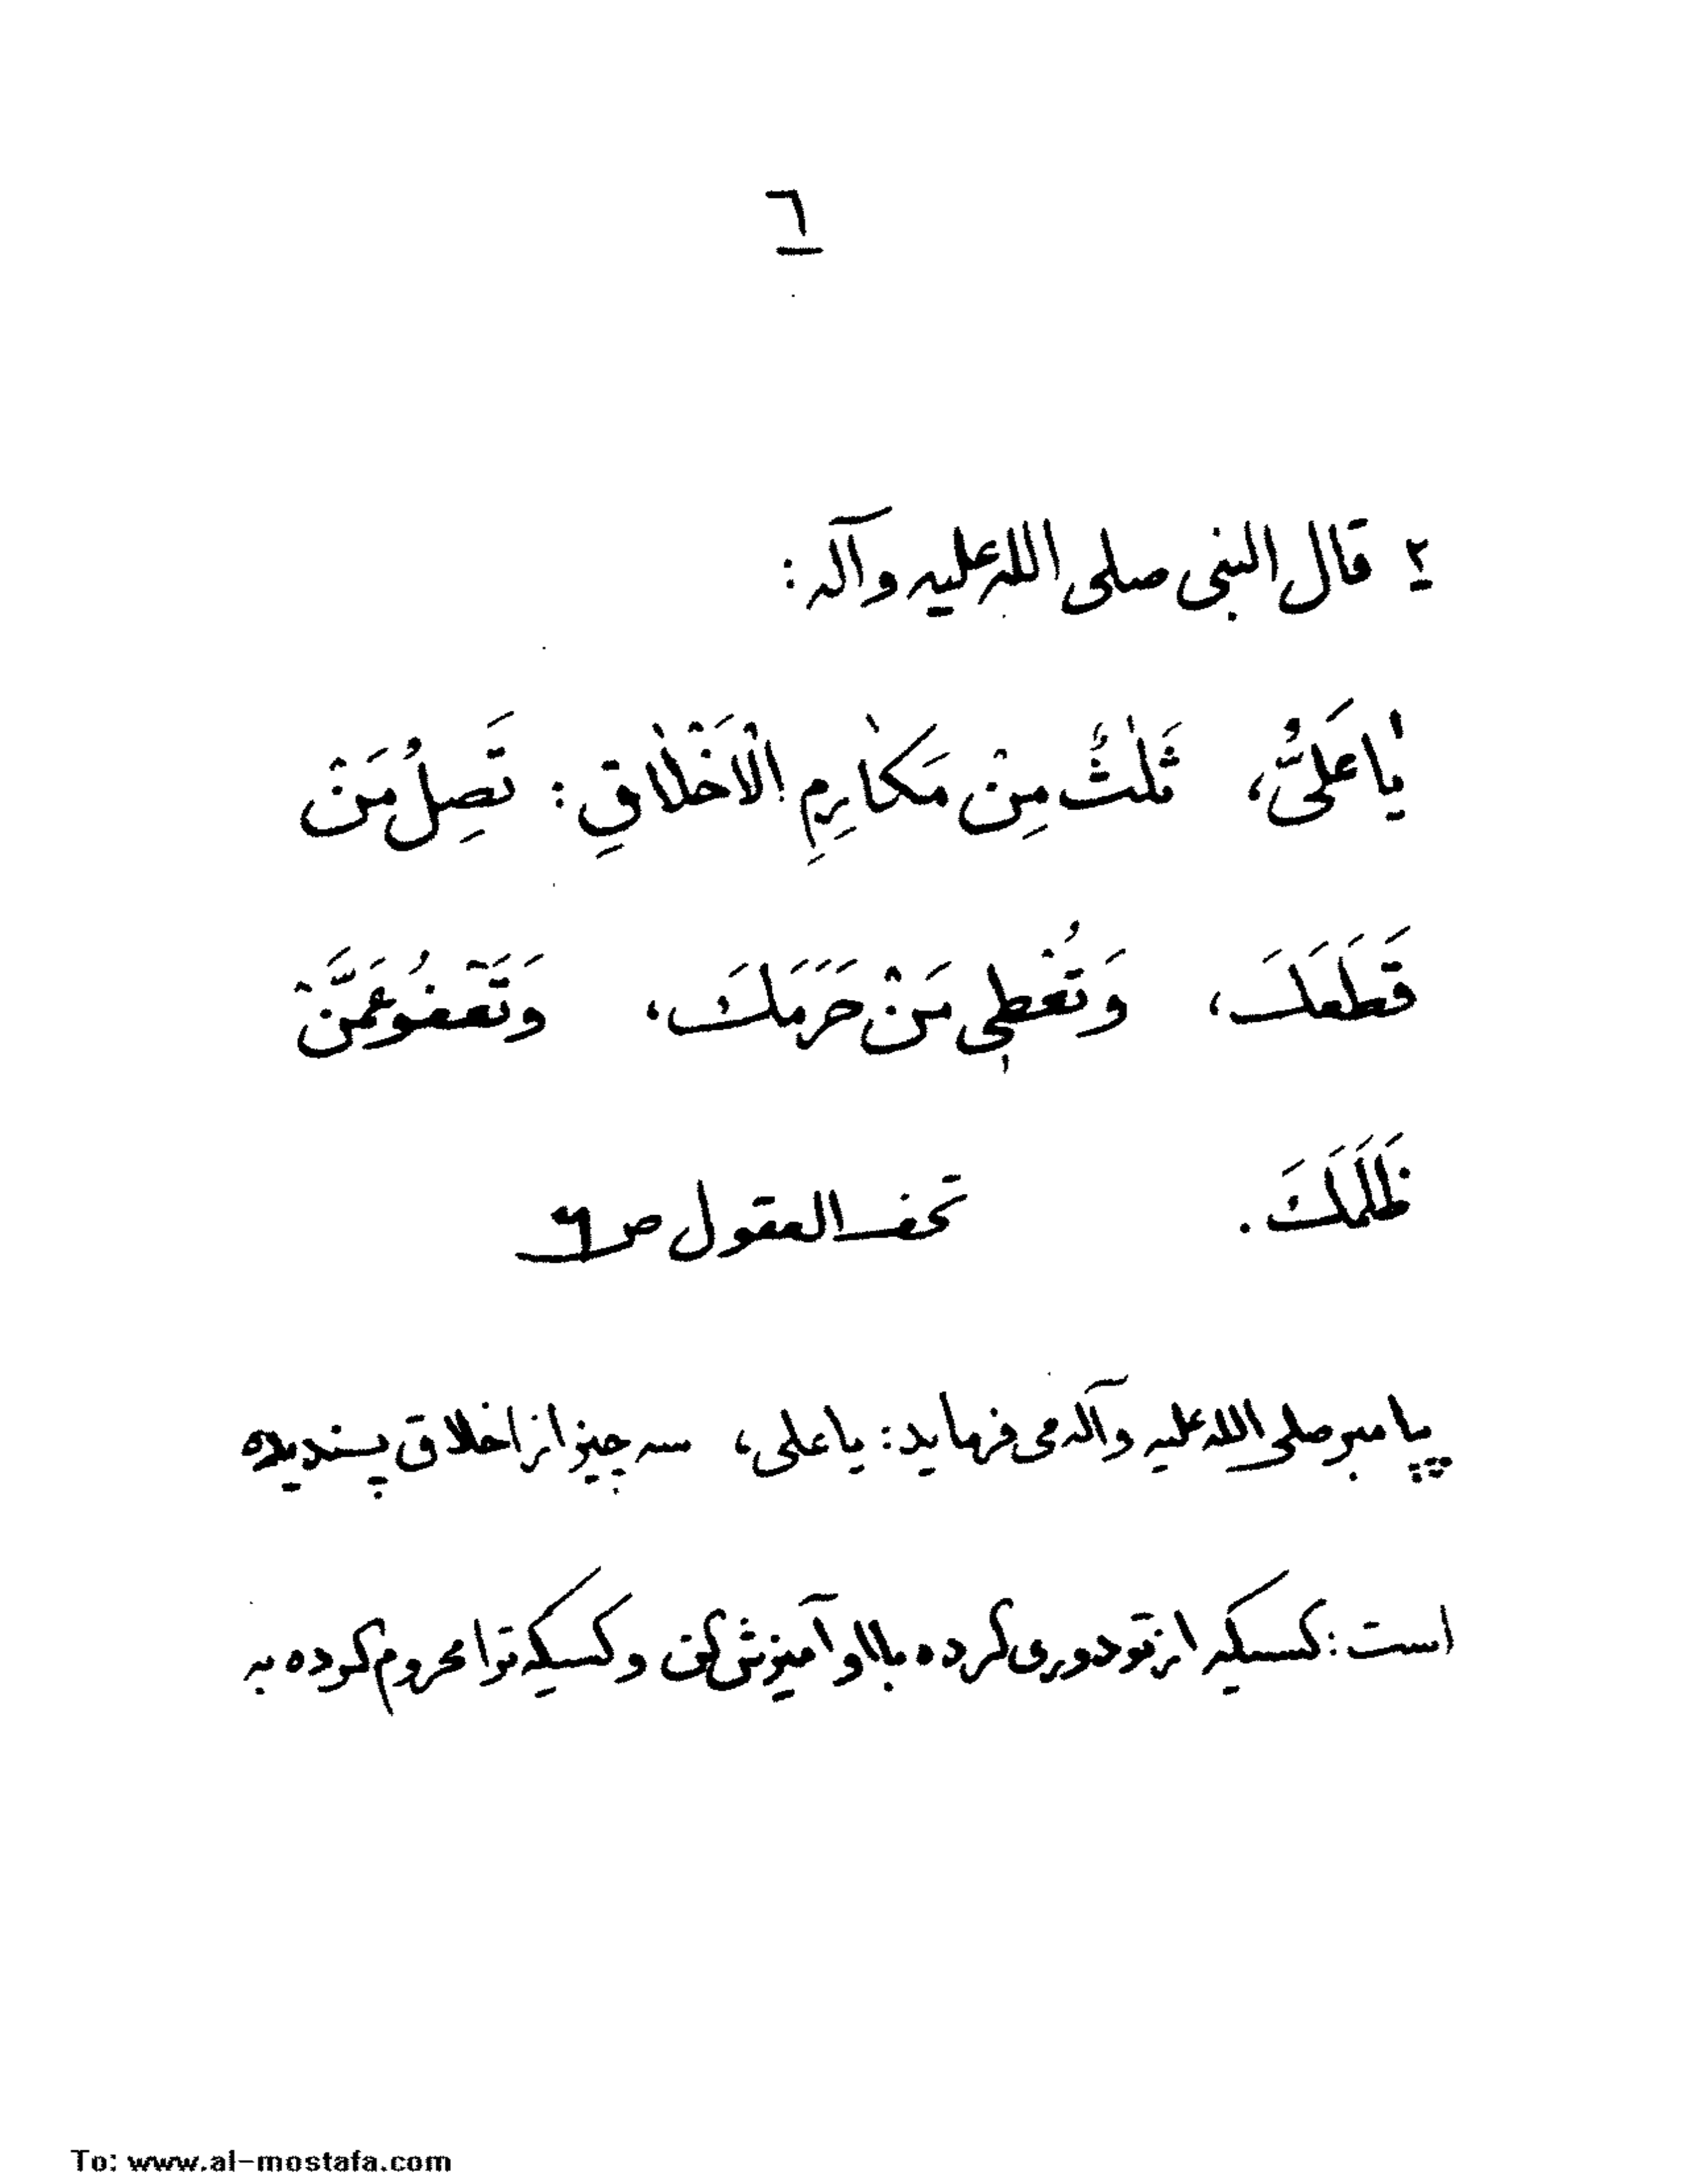 ٦
٢ قال النبی صلی الله علیه وآله:
یٰا عَلیُّ، ثَلٰثٌ مِنْ مَکٰارِمِ الْاَخْلٰاقِ: تَصِلُ مَنْ
قَطَعَكَ، وَتُعْطٖی مَنْ حَرَمَكَ، وَتَعْفُوعَمَّنْ
ظَلَمَكَ. تحف العقول ص٦
پیامبر صلی الله علیه وآله می فرماید: یا علی، سه چیز از اخلاق پسندیده
است: کسیکه از تو دوری کرده با او آمیزش کن و کسیکه ترا محروم کرده به
To: www.al-mostafa.com